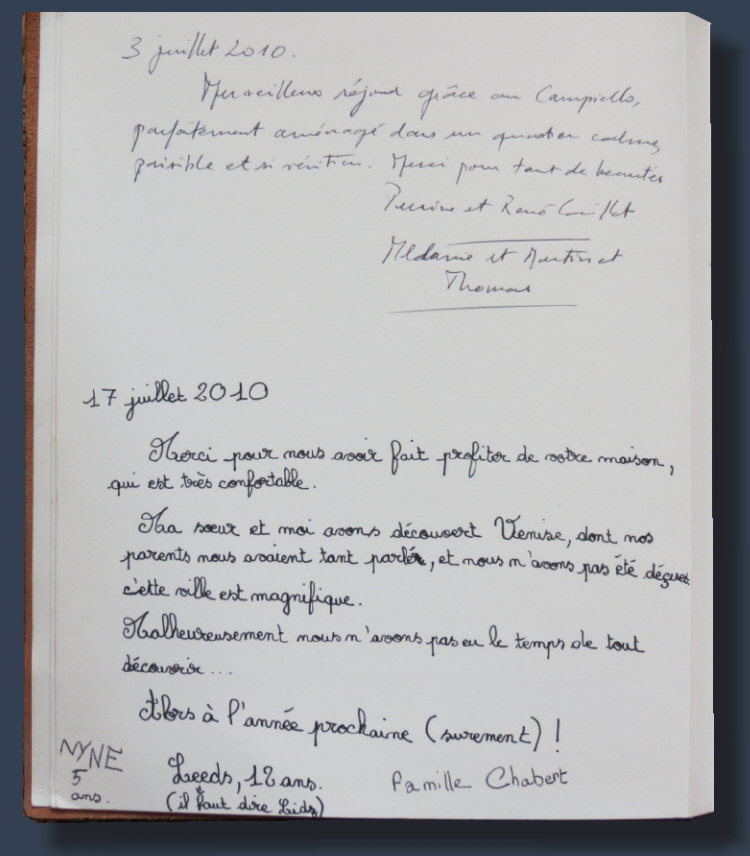 3 juillet 2010.
Merveilleux séjour grâce au Campiello,
parfaitement aménagé dans un quartier calme,
paisible et si vénitien. Merci pour tant de beautés
Perrine et René
Mélanie et Martin et
Thomas
17 juillet 2010
Merci pour nous avoir fait profiter de votre maison,
qui est très confortable.
Ma sœur et moi avons découvert Venise, dont nos
parents nous avaient tant parlé, et nous n'avons pas été déçues
c'ette ville est magnifique.
Malheureusement nous n'avons pas eu le temps de tout
découvrir...
Alors à l'année prochaine (surement) !
NYNE
5
ans.
Leeds, 12 ans.
(il faut dire Lidz)
famille Chabert